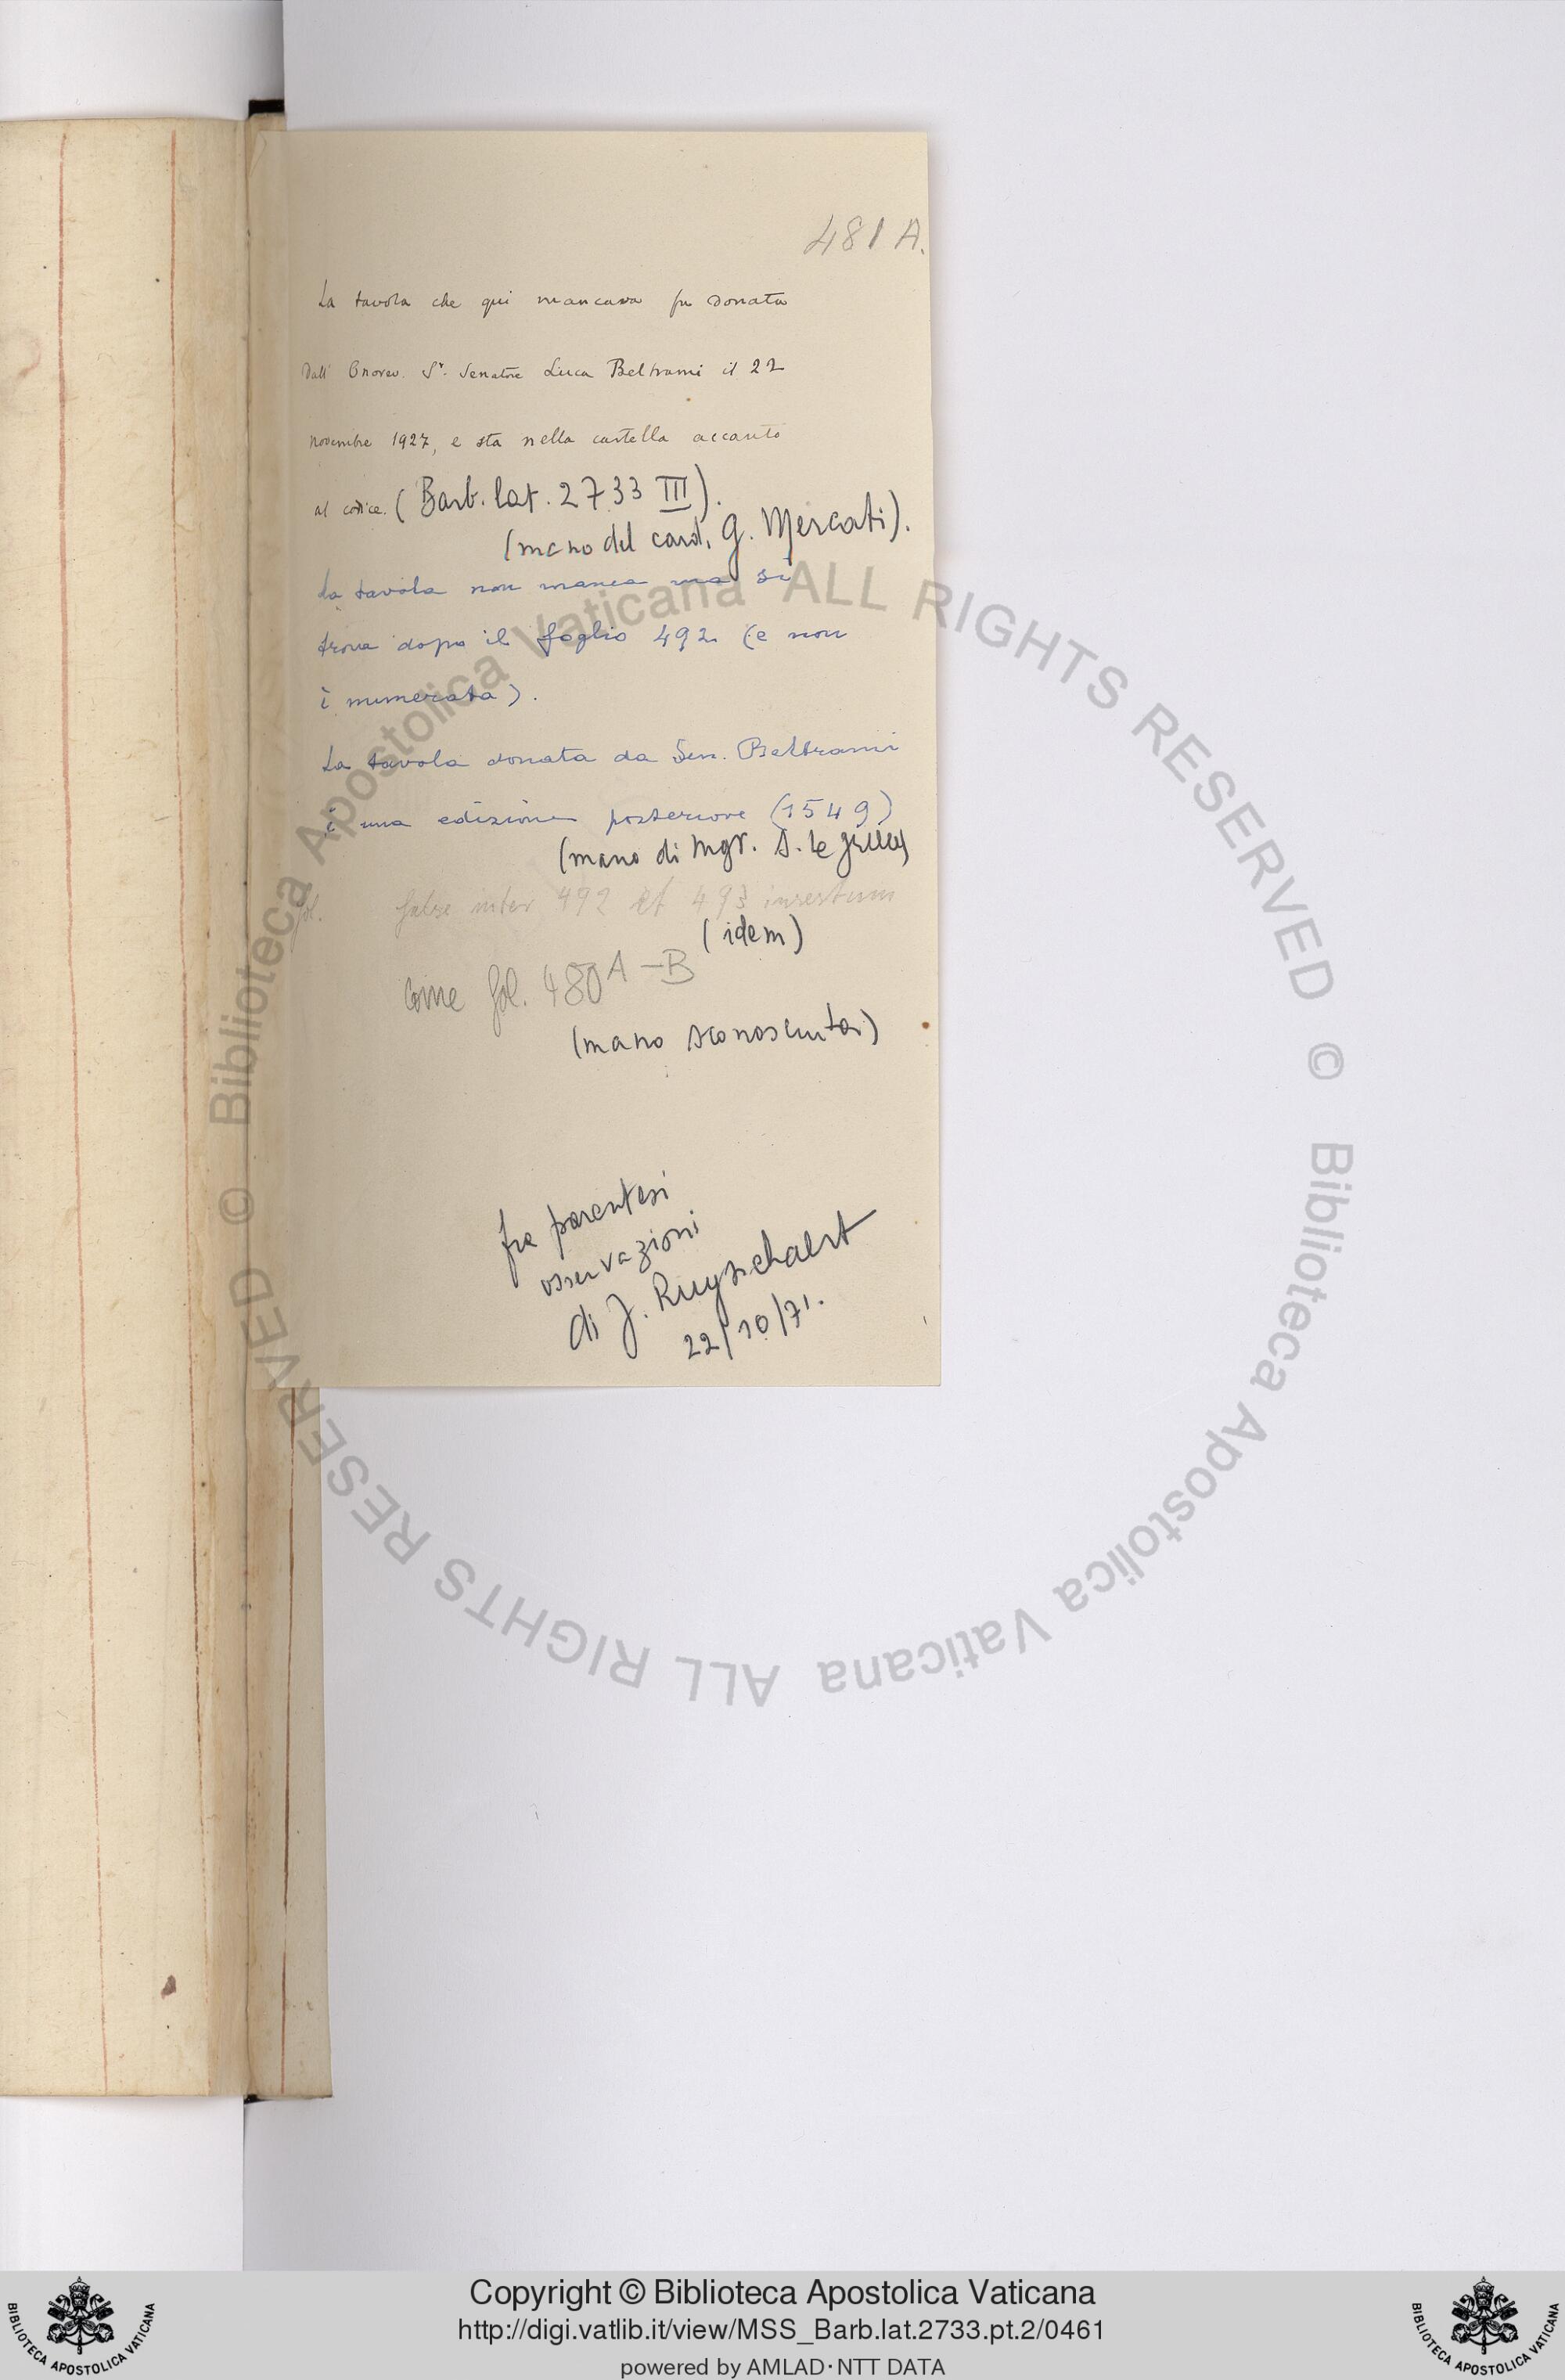 481 A.
La tavola che qui mancava fu donata
dall' Onorev. Sr. Senatore Luca Beltrami il 22
novembre 1927, e sta nella cartella accanto
al codice. (Barb. lat. 2733 III).
(mano del card. G. Mercati).
La tavola non manca ma si
trova dopo il foglio 492 (e non
è numerata).
La tavola donata da Sen. Beltrami
è una edizione posteriore (1549)
(mano di Mgr. S. le Grelle)
fol. false inter 492 et 493 insertum
(idem)
come fol. 480 A-B
(mano sconosciuta)
fra parentesi
osservazioni
di J. Ruysschaert
22/10/71.
© Biblioteca Apostolica Vaticana ALL RIGHTS RESERVED
© Biblioteca Apostolica Vaticana ALL RIGHTS RESERVED
BIBLIOTECA APOSTOLICA VATICANA
Copyright © Biblioteca Apostolica Vaticana
http://digi.vatlib.it/view/MSS_Barb.lat.2733.pt.2/0461
powered by AMLAD·NTT DATA
BIBLIOTECA APOSTOLICA VATICANA